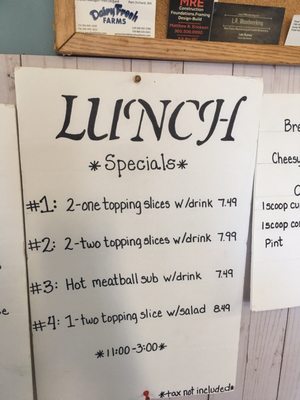 DairyFresh
FARMS
MRE
Construction
Foundations, Framing
Design-Build
LUNCH
*Specials*
#1: 2-one topping slices w/drink 7.49
#2: 2-two topping slices w/drink 7.99
#3: Hot meatball sub w/drink 7.49
#4: 1-two topping slice w/salad 8.49
*11:00-3:00*
*tax not included*
Bre
Cheesy
1 scoop cu
1 scoop co
Pint